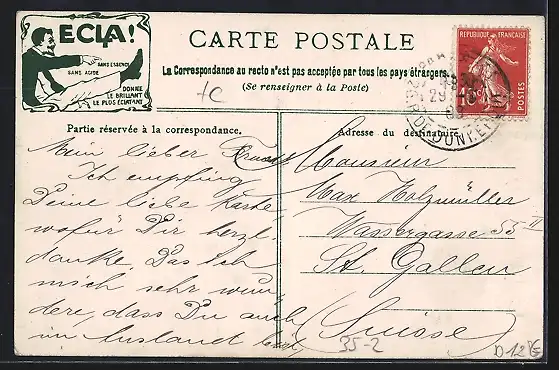 ECLA!
SANS ESSENCE
SANS ACIDE
DONNE
LE BRILLANT
LE PLUS ÉCLATANT
CARTE POSTALE
La Correspondance au recto n'est pas acceptée par tous les pays étrangers.
(Se renseigner à la Poste)
REPUBLIQUE FRANÇAISE
POSTES
Partie réservée à la correspondance.
Mein lieber Franz
Ich empfing
Deine liebe Karte,
wofür Dir herzl.
danke. Das Ich
mich sehr wun
dere, dass Du auch
im Ausland bist,
Adresse du destinataire.
Monsieur
Max Holzmüller
Wassergasse 55 II
St. Gallen
(Suisse)
35-2